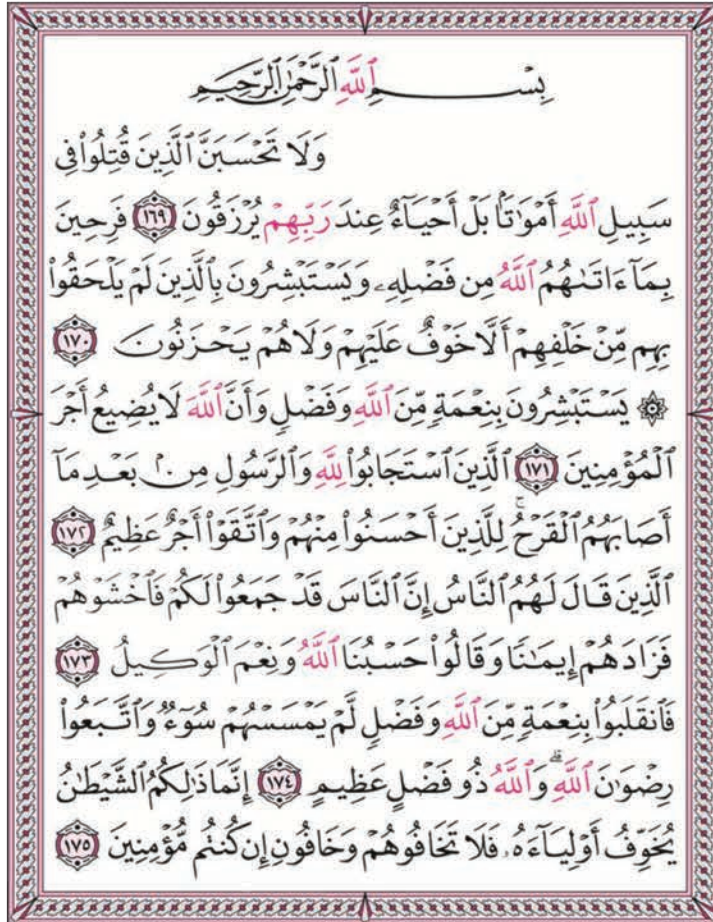 بِسْمِ ٱللَّهِ ٱلرَّحْمَٰنِ ٱلرَّحِيمِ
وَلَا تَحْسَبَنَّ ٱلَّذِينَ قُتِلُوا۟ فِى
سَبِيلِ ٱللَّهِ أَمْوَٰتًۢا بَلْ أَحْيَآءٌ عِندَ رَبِّهِمْ يُرْزَقُونَ ١٦٩ فَرِحِينَ
بِمَآ ءَاتَىٰهُمُ ٱللَّهُ مِن فَضْلِهِۦ وَيَسْتَبْشِرُونَ بِٱلَّذِينَ لَمْ يَلْحَقُوا۟
بِهِم مِّنْ خَلْفِهِمْ أَلَّا خَوْفٌ عَلَيْهِمْ وَلَا هُمْ يَحْزَنُونَ ١٧٠
۞ يَسْتَبْشِرُونَ بِنِعْمَةٍ مِّنَ ٱللَّهِ وَفَضْلٍ وَأَنَّ ٱللَّهَ لَا يُضِيعُ أَجْرَ
ٱلْمُؤْمِنِينَ ١٧١ ٱلَّذِينَ ٱسْتَجَابُوا۟ لِلَّهِ وَٱلرَّسُولِ مِنۢ بَعْدِ مَآ
أَصَابَهُمُ ٱلْقَرْحُ ۚ لِلَّذِينَ أَحْسَنُوا۟ مِنْهُمْ وَٱتَّقَوْا۟ أَجْرٌ عَظِيمٌ ١٧٢
ٱلَّذِينَ قَالَ لَهُمُ ٱلنَّاسُ إِنَّ ٱلنَّاسَ قَدْ جَمَعُوا۟ لَكُمْ فَٱخْشَوْهُمْ
فَزَادَهُمْ إِيمَٰنًا وَقَالُوا۟ حَسْبُنَا ٱللَّهُ وَنِعْمَ ٱلْوَكِيلُ ١٧٣
فَٱنقَلَبُوا۟ بِنِعْمَةٍ مِّنَ ٱللَّهِ وَفَضْلٍ لَّمْ يَمْسَسْهُمْ سُوٓءٌ وَٱتَّبَعُوا۟
رِضْوَٰنَ ٱللَّهِ ۗ وَٱللَّهُ ذُو فَضْلٍ عَظِيمٍ ١٧٤ إِنَّمَا ذَٰلِكُمُ ٱلشَّيْطَٰنُ
يُخَوِّفُ أَوْلِيَآءَهُۥ فَلَا تَخَافُوهُمْ وَخَافُونِ إِن كُنتُم مُّؤْمِنِينَ ١٧٥